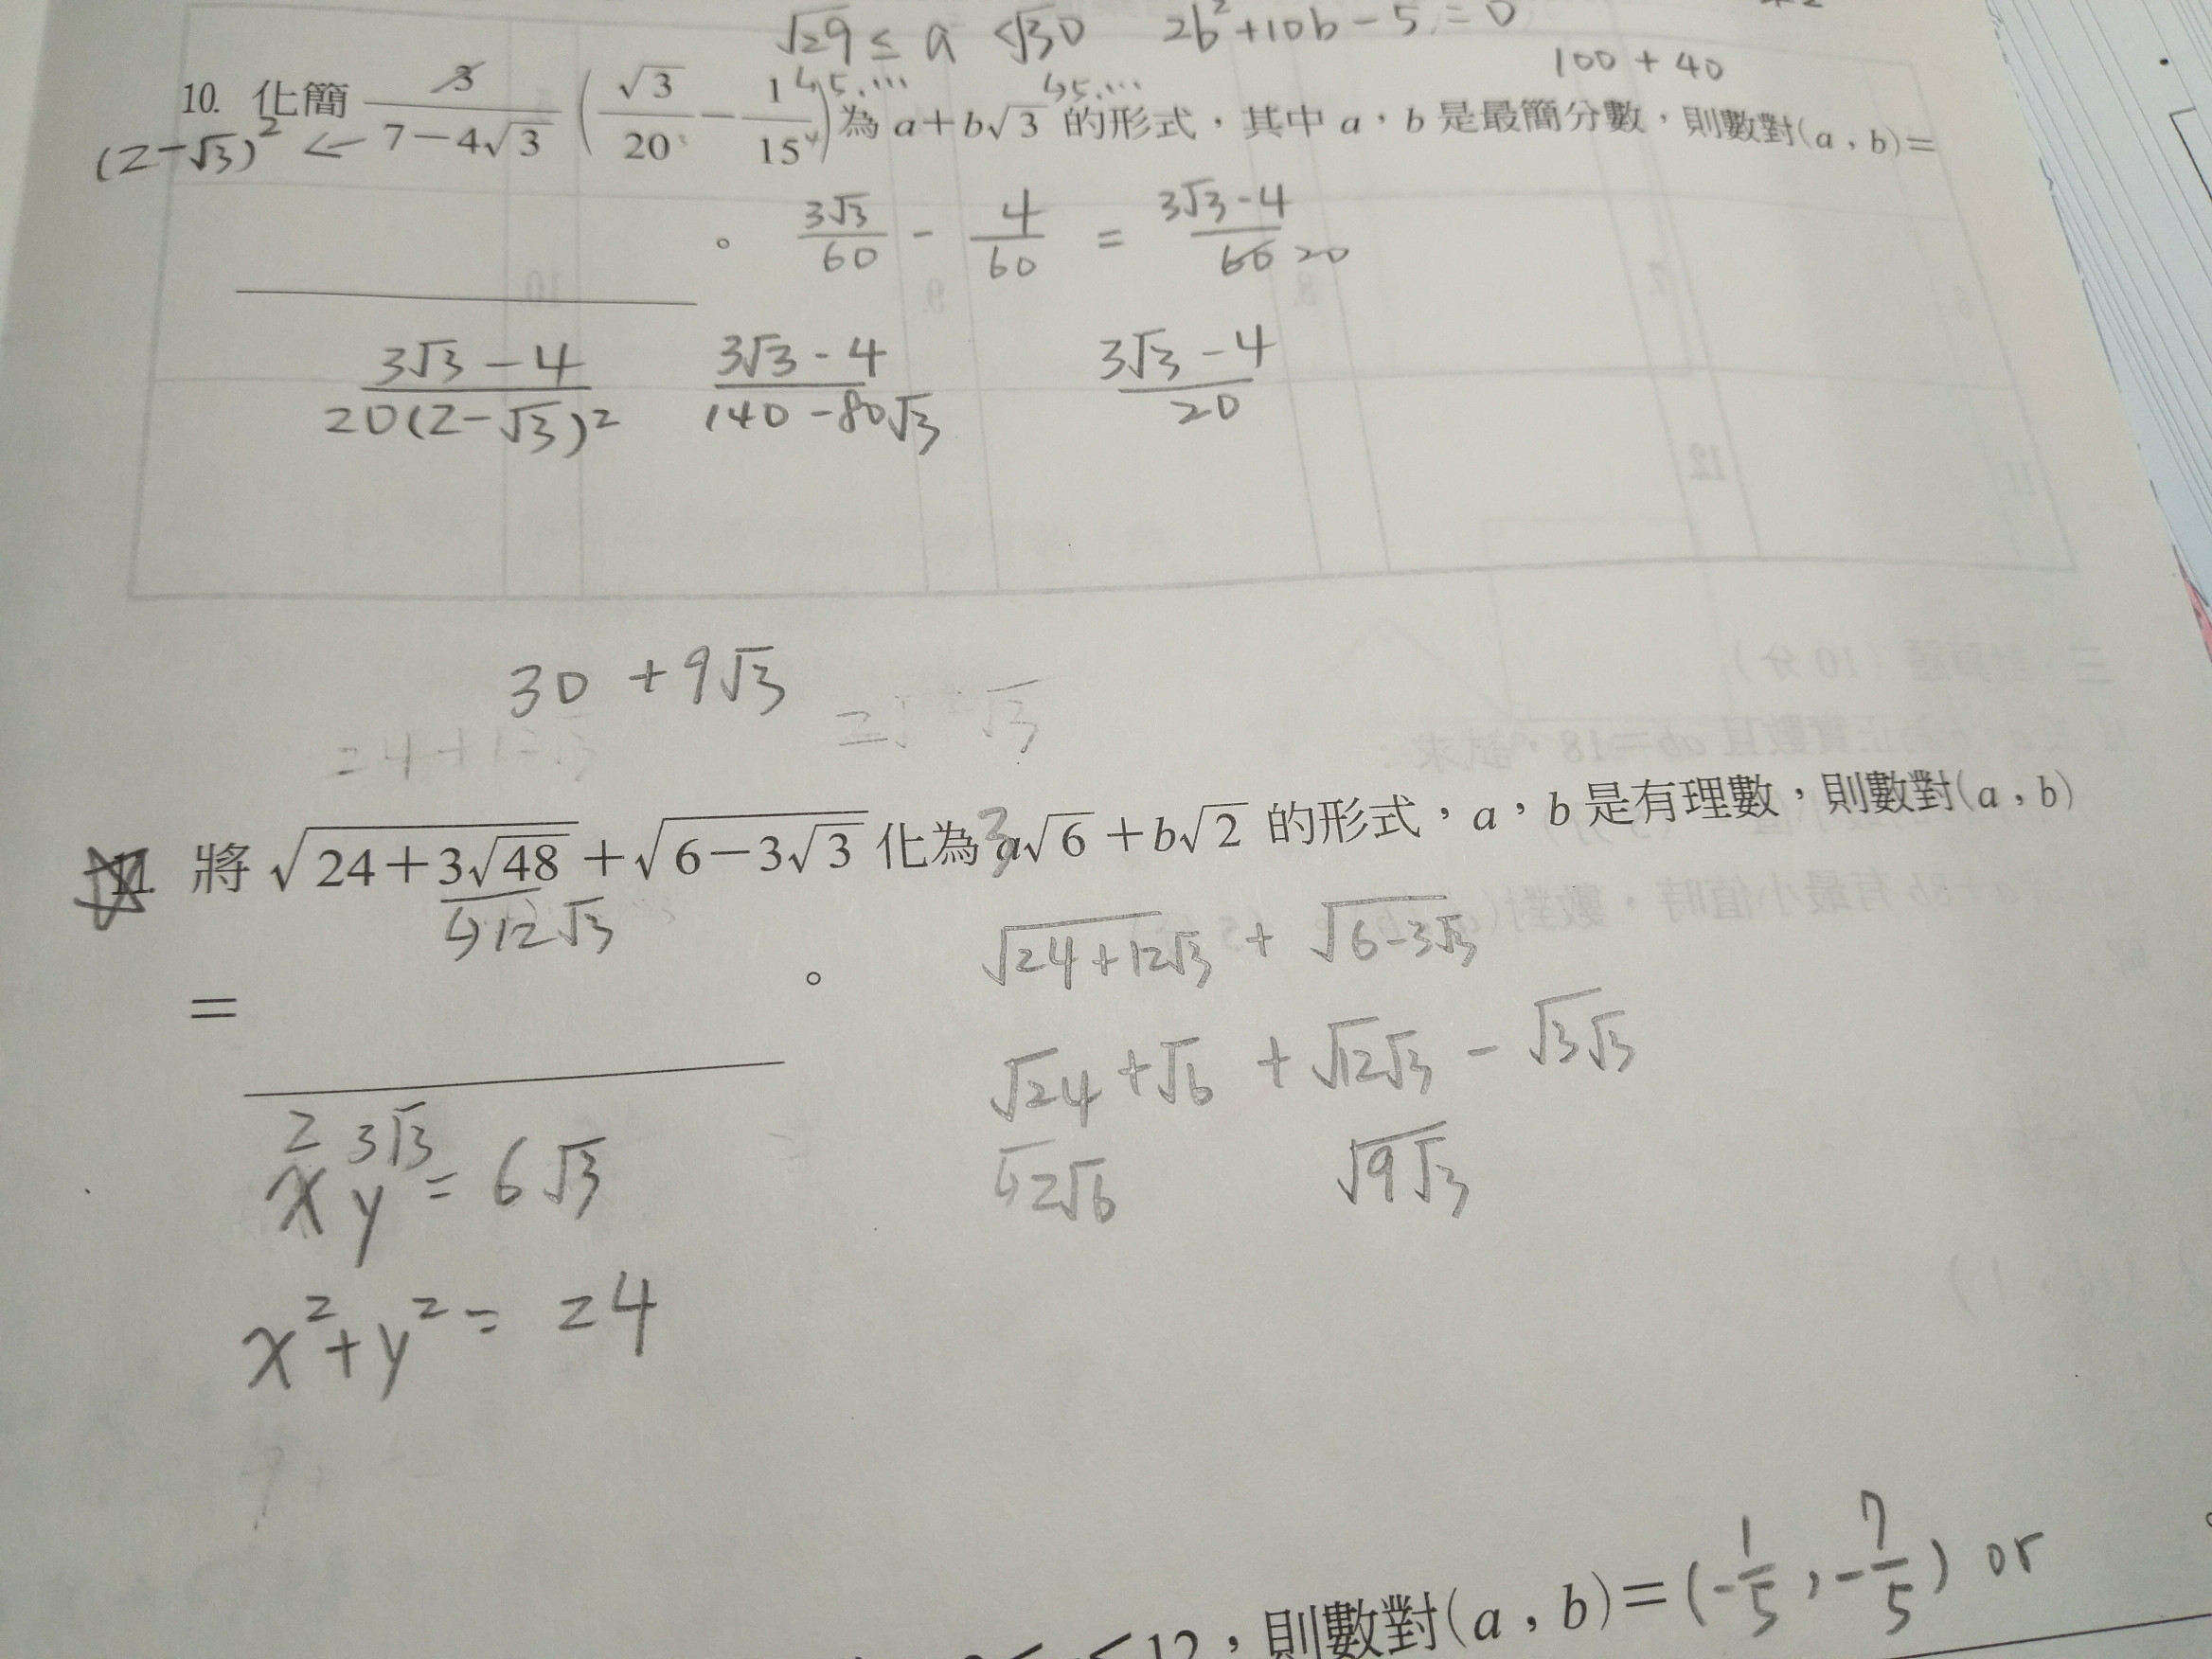 √29 ≤ a <√30 2b²+10b-5=0
↳5.... ↳5.... 100+40
10. 化簡 3/(7-4√3) (√3/20 - 1/15) 為 a+b√3 的形式,其中 a,b 是最簡分數,則數對(a,b)=
(2-√3)² ←
。 3√3/60 - 4/60 = (3√3-4)/60 20
(3√3-4)/(20(2-√3)²) (3√3-4)/(140-80√3) (3√3-4)/20
30 + 9√3
11. 將 √(24+3√48) + √(6-3√3) 化為 3 a√6+b√2 的形式,a,b 是有理數,則數對(a,b)
↳12√3
= 。
√(24+12√3) + √(6-3√3)
√24 + √6 + √12√3 - √3√3
↳2√6 √9√3
2 3√3
xy = 6√3
x²+y² = 24
12,則數對(a,b)=(-1/5,-7/5) or